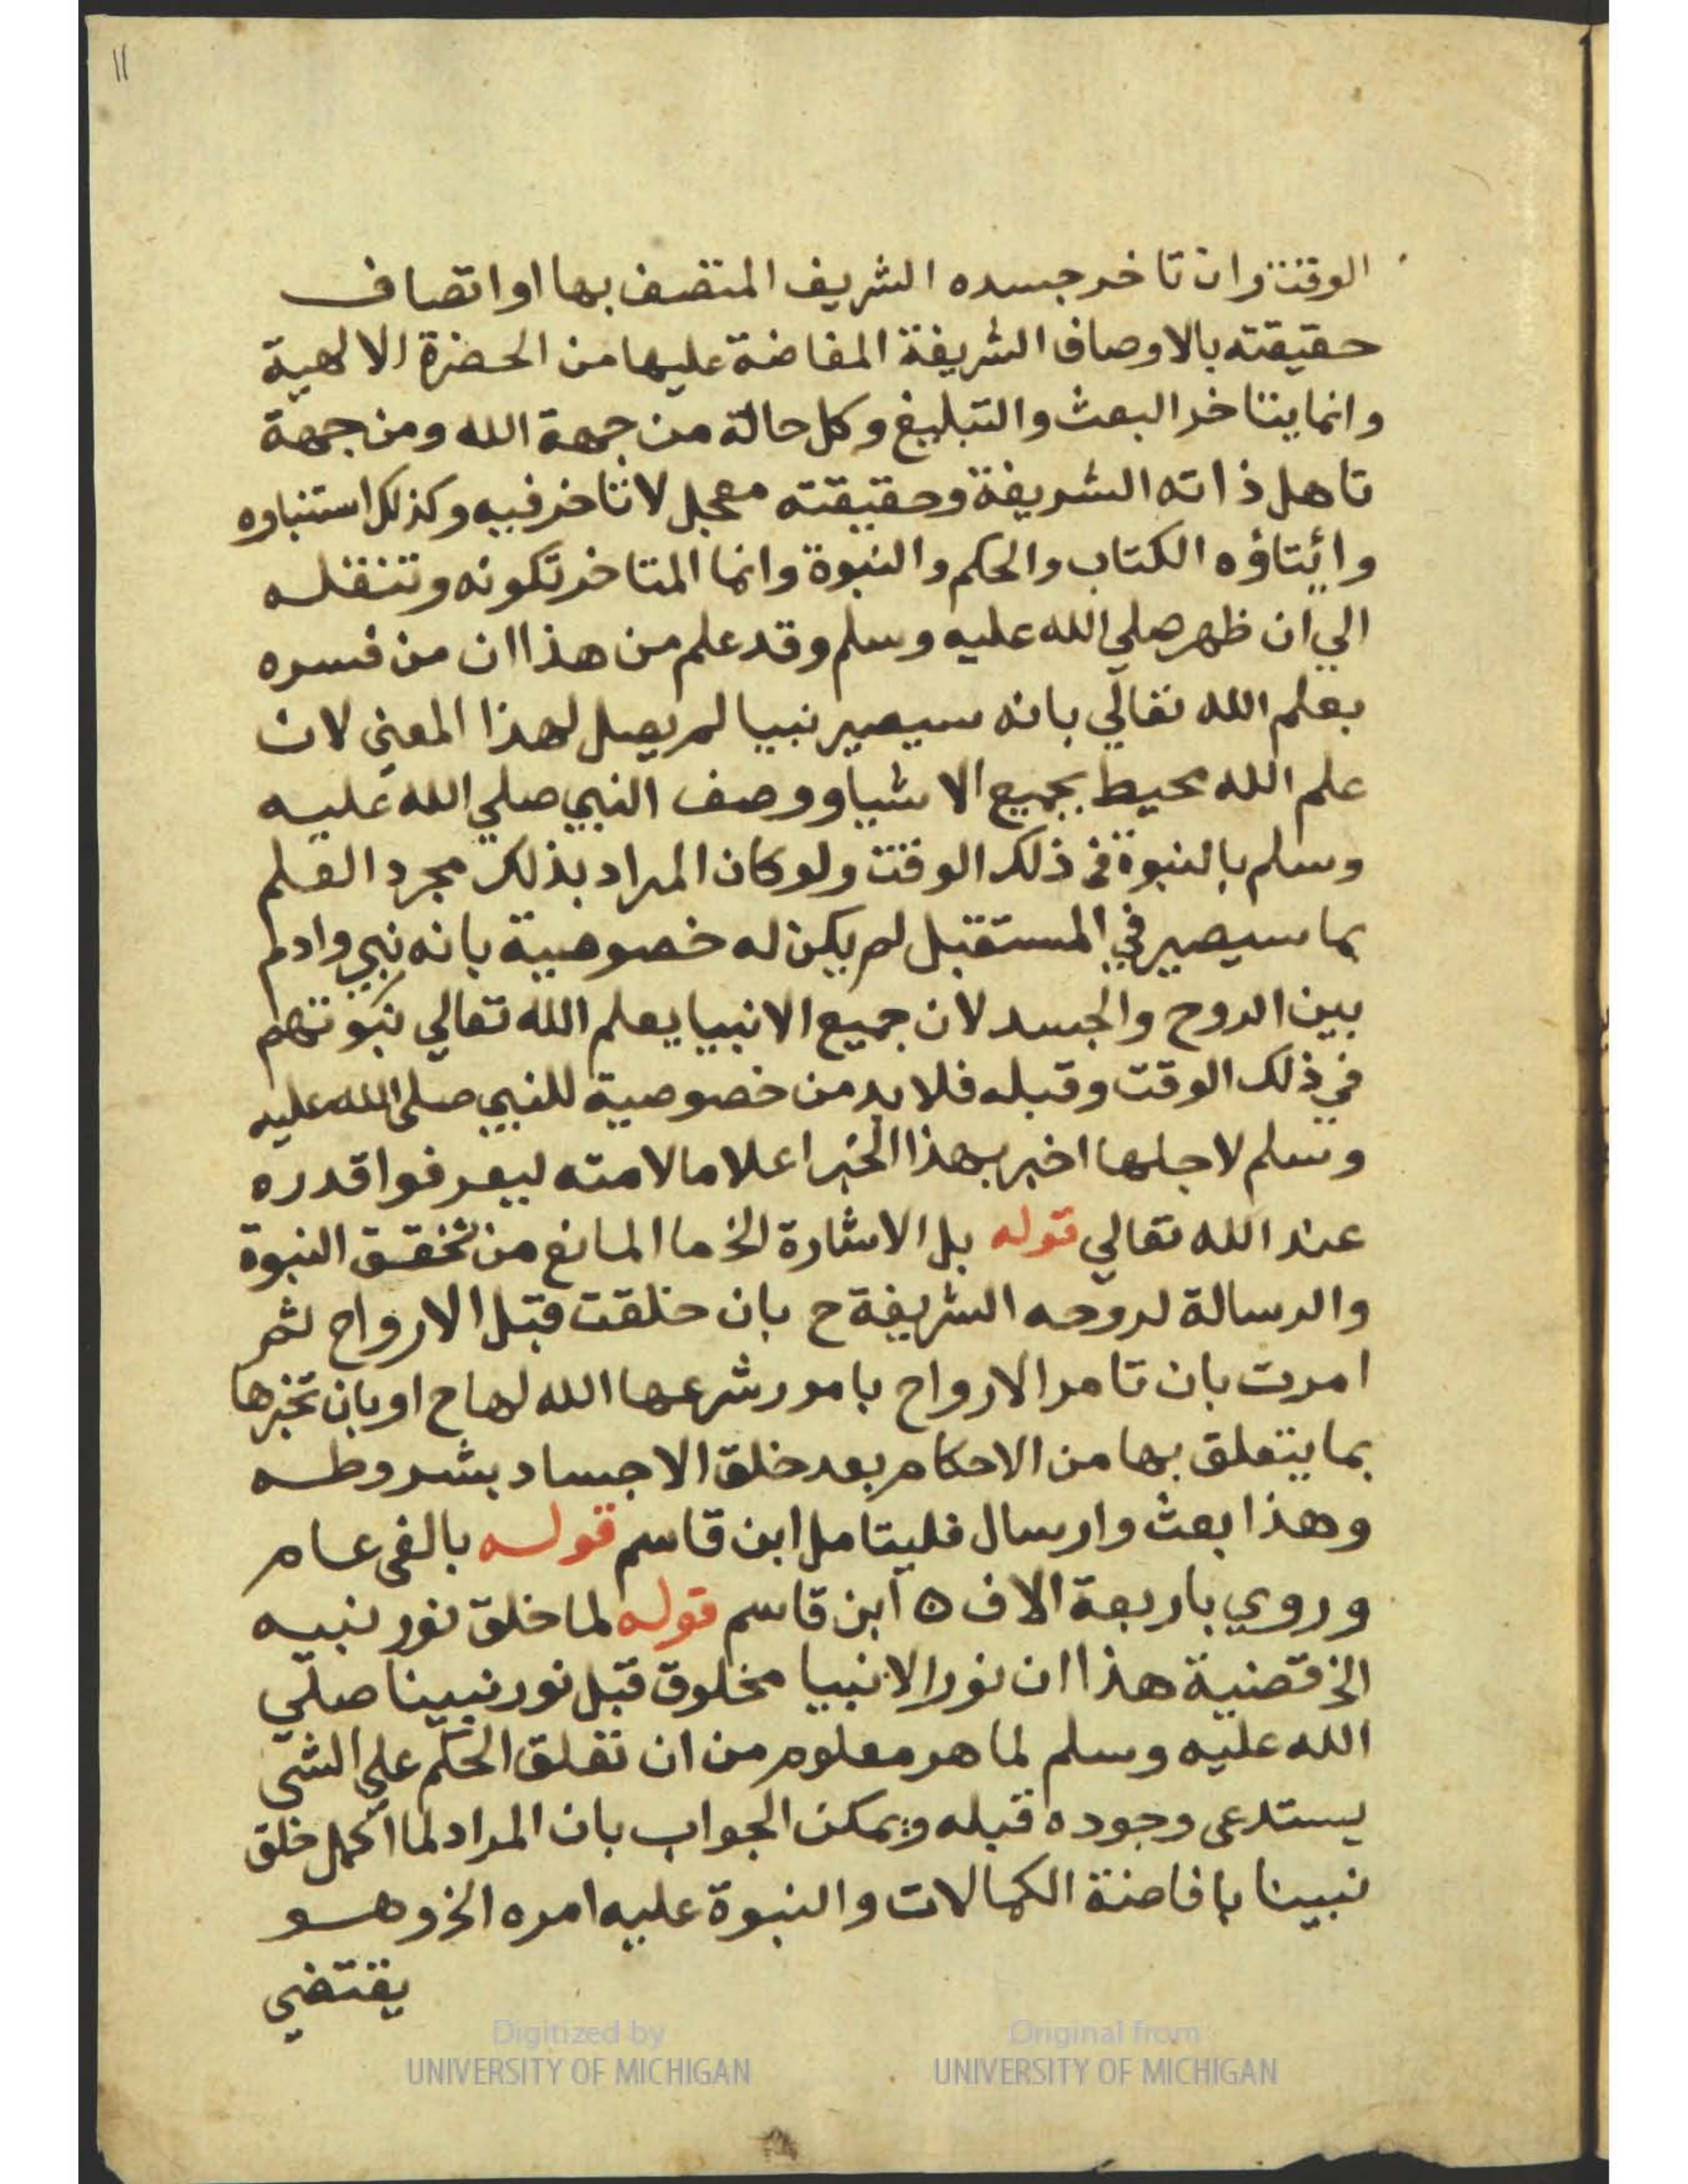 11
الوقت وان تاخر جسده الشريف المتصف بها او اتصاف
حقيقته بالاوصاف الشريفة المفاضة عليها من الحضرة الالهية
وانما يتاخر البعث والتبليغ وكل حالة من جهة الله ومن جهة
تاهل ذاته الشريفة وحقيقته معجل لا تاخر فيه وكذلك استنباوه
وائيتاؤه الكتاب والحكم والنبوة وانما المتاخر تكونه وتنقله
الي ان ظهر صلي الله عليه وسلم وقد علم من هذا ان من فسره
بعلم الله تعالي بانه سيصير نبيا لم يصل لهذا المعني لان
علم الله محيط بجميع الاشيا ووصف النبي صلي الله عليه
وسلم بالنبوة في ذلك الوقت ولو كان المراد بذلك مجرد العلم
بما سيصير في المستقبل لم يكن له خصوصية بانه نبي وادم
بين الروح والجسد لان جميع الانبيا يعلم الله تعالي نبوتهم
في ذلك الوقت وقبله فلا بد من خصوصية للنبي صلي الله عليه
وسلم لاجلها اخبر بهذا الخبر اعلاما لامته ليعرفوا قدره
عند الله تعالي قوله بل الاشارة الخ ما المانع من تحقق النبوة
والرسالة لروحه الشريفة ح بان خلقت قبل الارواح ثم
امرت بان تامر الارواح بامور شرعها الله لها ح او بان تخبرها
بما يتعلق بها من الاحكام بعد خلق الاجساد بشروطه
وهذا بعث وارسال فليتامل ابن قاسم قوله بالفي عام
وروي باربعة الاف ه ابن قاسم قوله لما خلق نور نبيه
الخ قضية هذا ان نور الانبيا مخلوق قبل نور نبينا صلي
الله عليه وسلم لما هر معلوم من ان تعلق الحكم علي الشي
يستدعي وجوده قبله ويمكن الجواب بان المراد لما اكمل خلق
نبينا بافاضة الكمالات والنبوة عليه امره الخ وهو
يقتضي
Digitized by
UNIVERSITY OF MICHIGAN
Original from
UNIVERSITY OF MICHIGAN